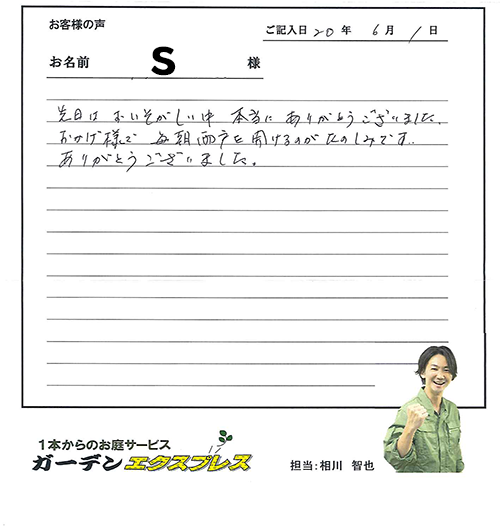 お客様の声
ご記入日 20 年 6 月 1 日
お名前 S 様
先日は おいそがしい中 本当に ありがとうございました.
おかげ様で 毎朝雨戸を開けるのが たのしみです.
ありがとうございました。
1本からのお庭サービス
ガーデンエクスプレス
担当:相川 智也